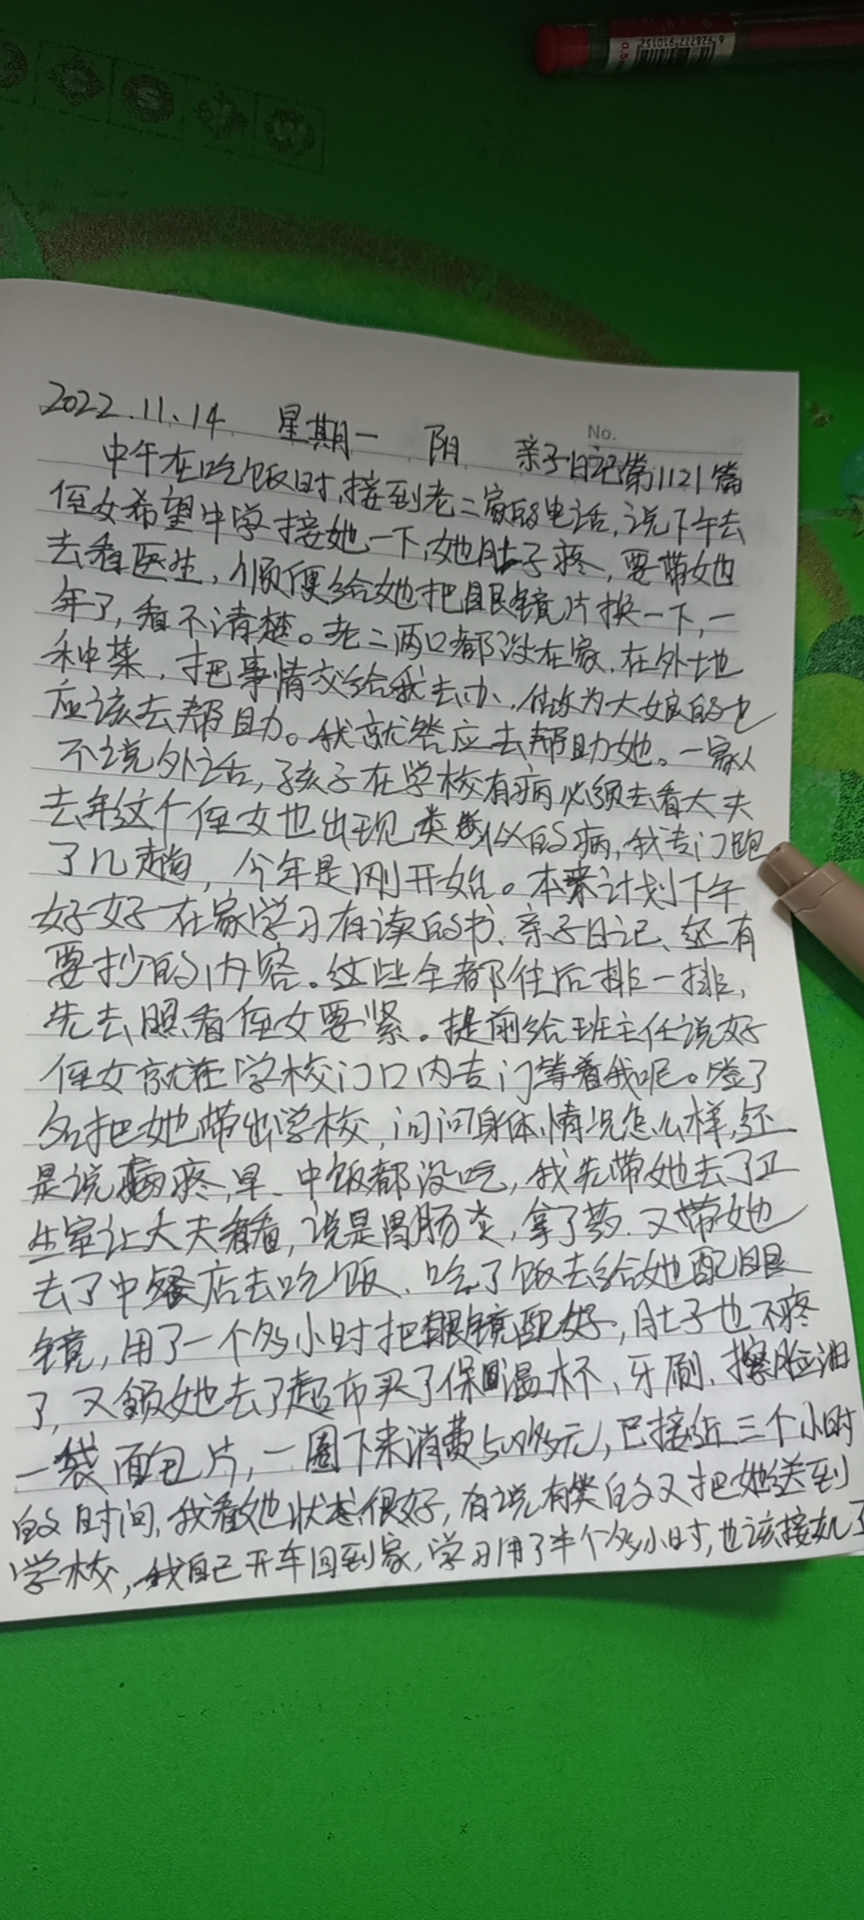 6 928777 910152
No.
2022.11.14 星期一 阴 亲子日记第1121篇
中午在吃饭时,接到老二家的电话,说下午去
侄女希望中学接她一下,她肚子疼,要带她
去看医生,顺便给她把眼镜片换一下,一
年了,看不清楚。老二两口都没在家,在外地
种菜,把事情交给我去办,做为大娘的也
应该去帮助。我就答应去帮助她。一家人
不说外话,孩子在学校有病必须去看大夫
去年这个侄女也出现类似的病,我专门跑
了几趟,今年是刚开始。本来计划下午
好好在家学习有读的书、亲子日记、还有
要抄的内容。这些全都往后排一排,
先去照看侄女要紧。提前给班主任说好
侄女就在学校门口内专门等着我呢。签了
名把她带出学校,问问身体情况怎么样,还
是说疼,早、中饭都没吃,我先带她去了卫
生室让大夫看看,说是胃肠炎,拿了药.又带她
去了中餐店去吃饭、吃了饭去给她配眼
镜,用了一个多小时把眼镜配好,肚子也不疼
了,又领她去了超市买了保温杯、牙刷、擦脸油
一袋面包片,一圈下来消费多元,已接近三个小时
的时间,我看她状态很好,有说有笑的又把她送到
学校,我自己开车回到家,学习用了半个多小时,也该接了